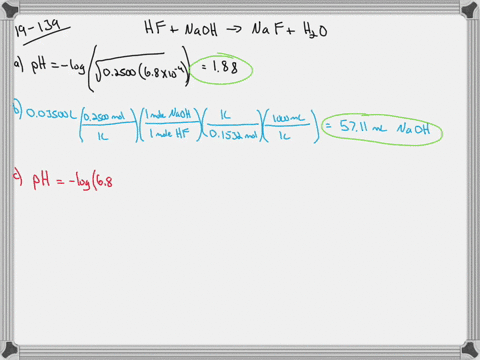 19-139
HF + NaOH → NaF + H₂O
a) pH = -log(√0.2500 (6.8×10⁻⁴)) = 1.88
b) 0.03500L (0.2500 mol / 1L) (1 mole NaOH / 1 mole HF) (1L / 0.1532 mol) (1000 mL / 1L) = 57.11 mL NaOH
c) pH = -log(6.8